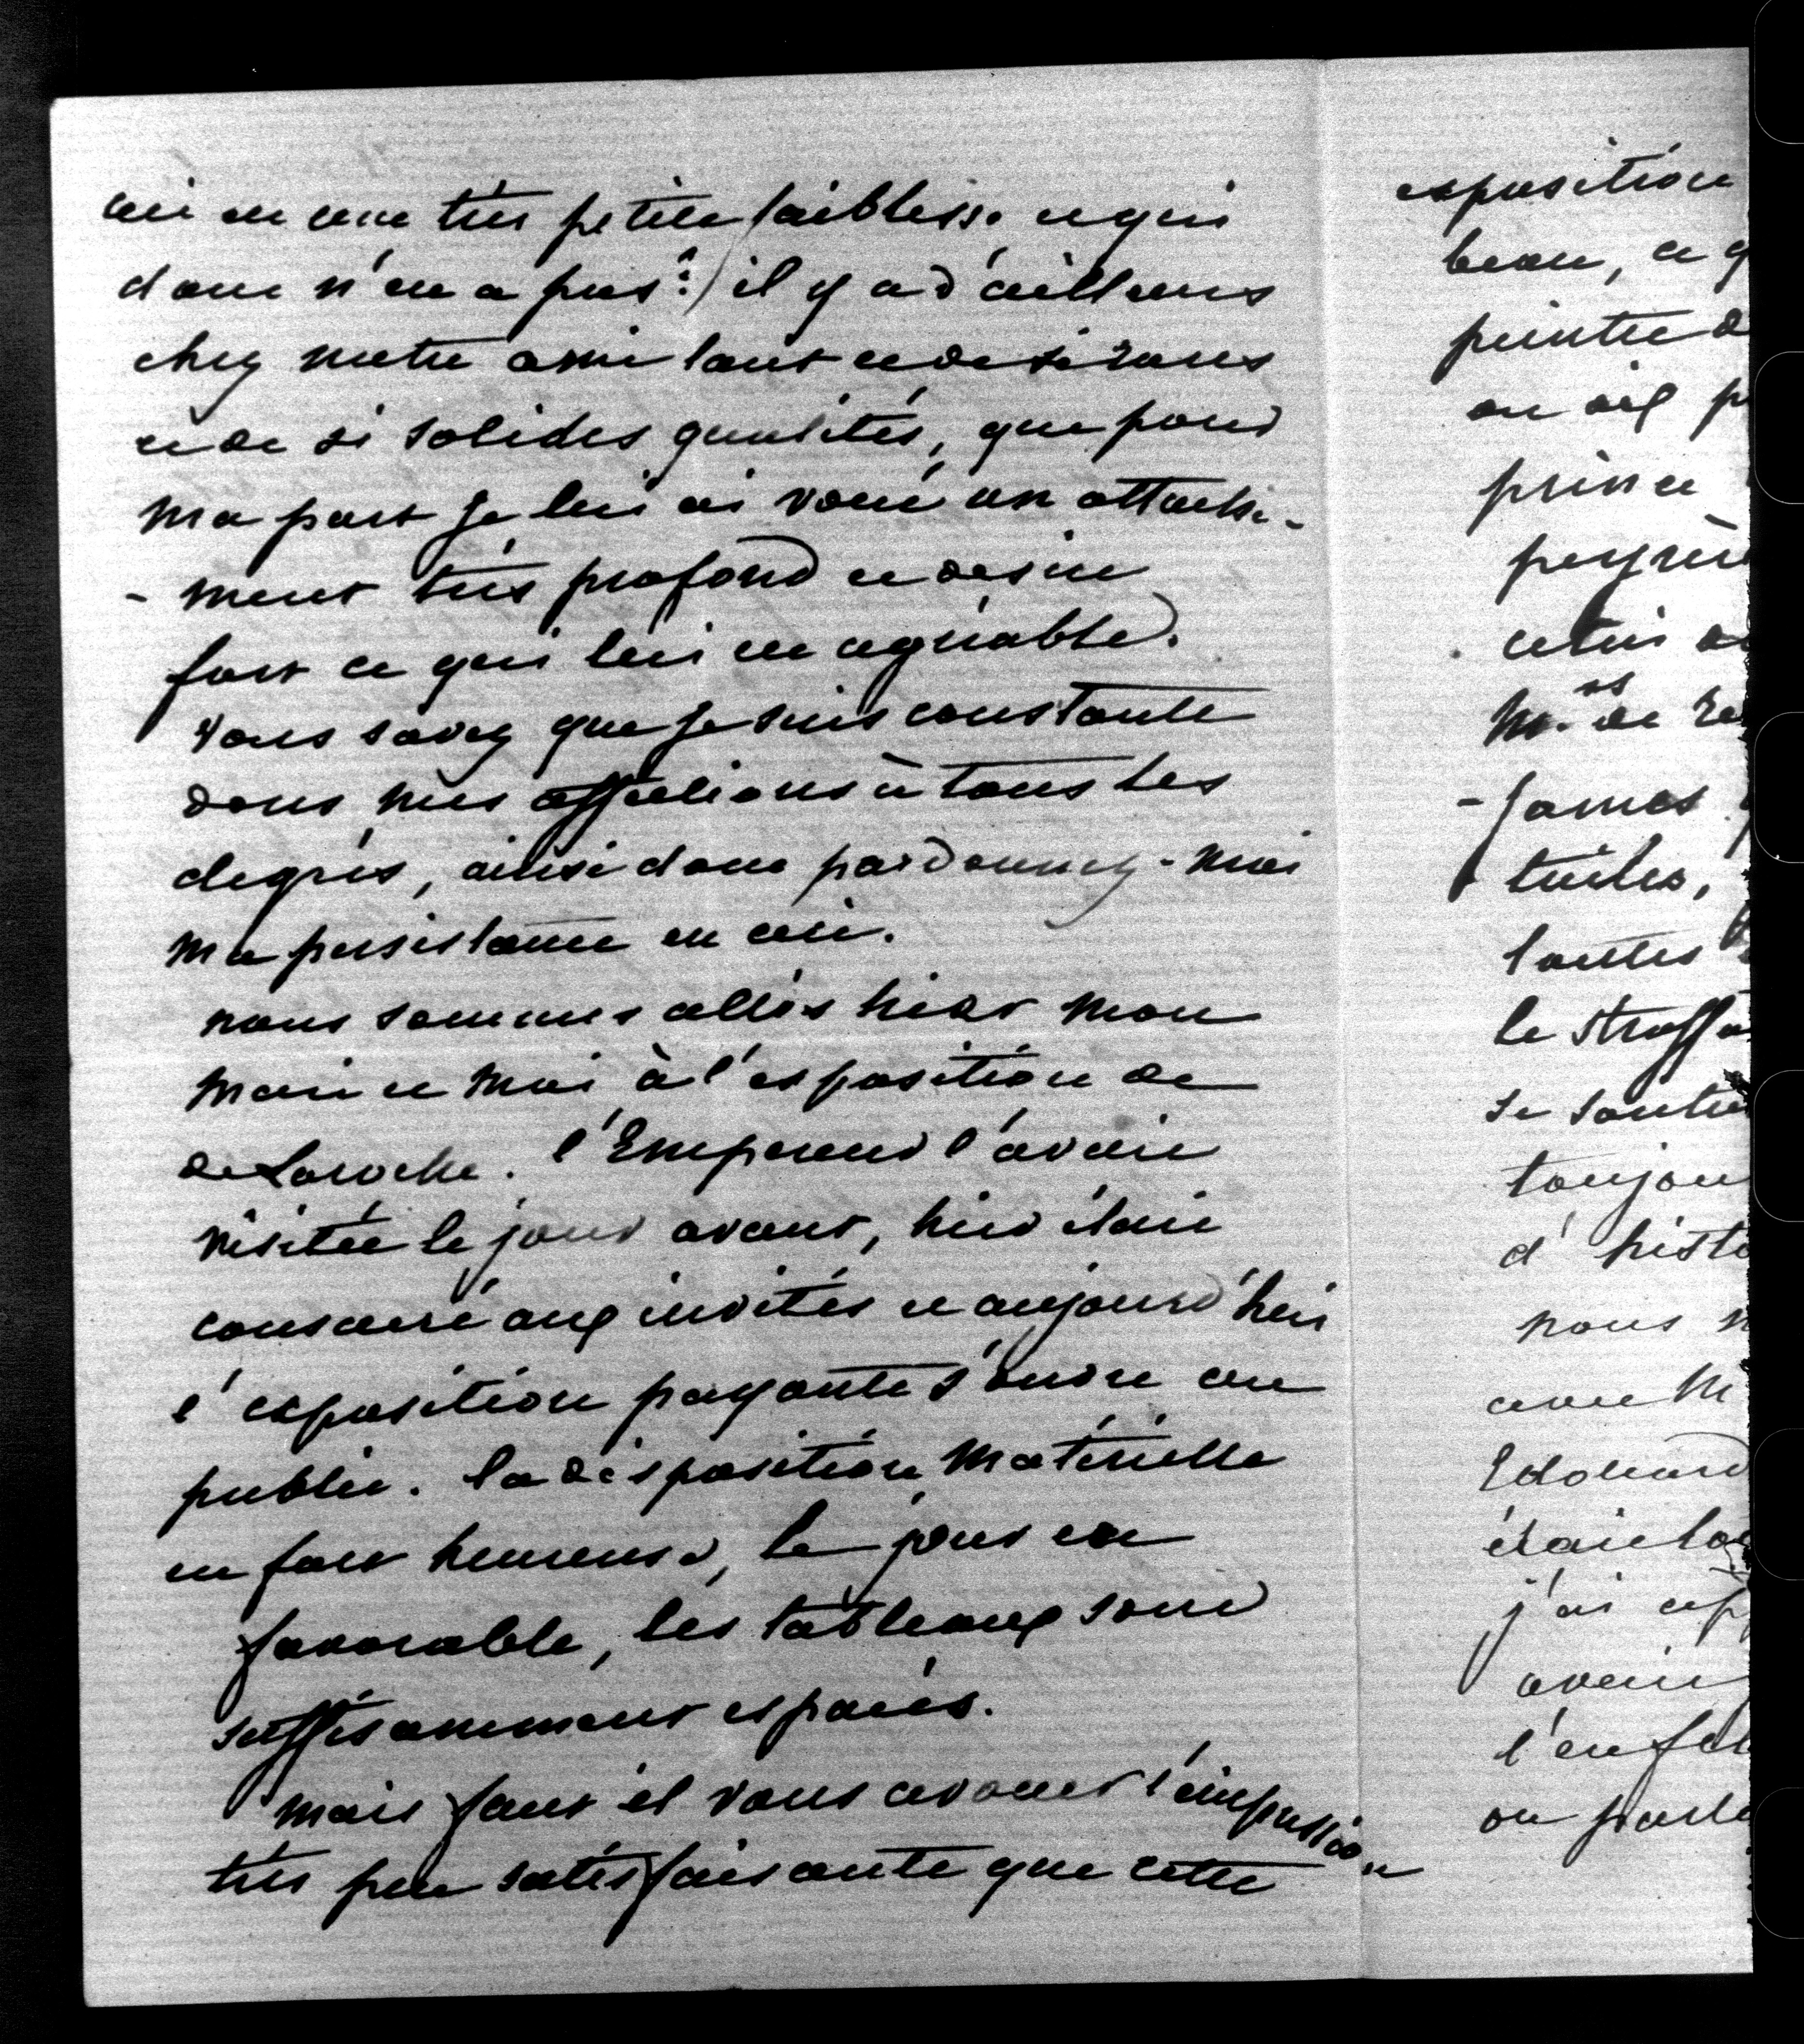 ceci est une très petite faiblesse et qui
donc n'en a pas ?) il y a d'ailleurs
chez notre ami tant et de si rares
et de si solides qualités, que pour
ma part je lui ai voué un attache-
- ment très profond et désire
fort ce qui lui est agréable.
Vous savez que je suis constante
dans mes affections à tous les
degrés, ainsi donc pardonnez-moi
ma persistance en ceci.
nous sommes allés hier mon
mari et moi à l'exposition de
de Laroche. l'Empereur l'avait
visitée le jour avant, hier était
consacré aux invités et aujourd'hui
l'exposition payante s'ouvre au
public. la disposition matérielle
est fort heureuse, le jour est
favorable, les tableaux sont
suffisamment espacés.
mais faut il vous avouer l'impression
très peu satisfaisante que cette
exposition
beau, ce q
peintre d
on ait p
prince
celui
- James
toiles,
toutes
le Straff
se soutie
toujou
d' histo
nous n
avec M
Edouard
était
j'ai
avait
l'enf
on parle